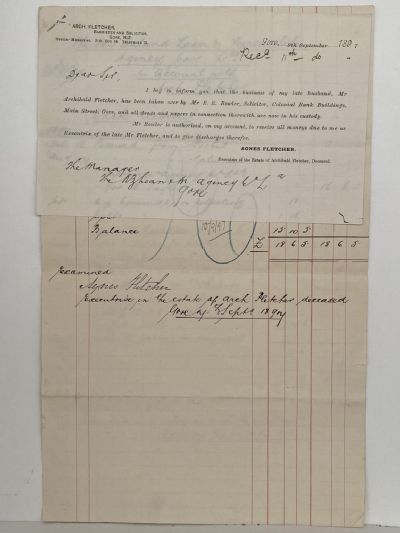 From
ARCH. FLETCHER,
BARRISTER AND SOLICITOR,
GORE, N.Z.
Gore, 9th September 1897
Recd 11th do "
Dear Sir,
I beg to inform you that the business of my late husband, Mr
Archibald Fletcher, has been taken over by Mr E. R. Bowler, Solicitor, Colonial Bank Buildings,
Main Street, Gore, and all deeds and papers in connection therewith are now in his custody.
Mr Bowler is authorised, on my account, to receive all moneys due to me as
Executrix of the late Mr Fletcher, and to give discharges therefor.
AGNES FLETCHER,
Executrix of the Estate of Archibald Fletcher, Deceased.
The Manager
The &  Agency
Gore
Balance 15 10 5
£ 18 6 5 18 6 5
Examined
Agnes Fletcher
Executrix in the estate of Arch Fletcher deceased
Gore Sept 1897